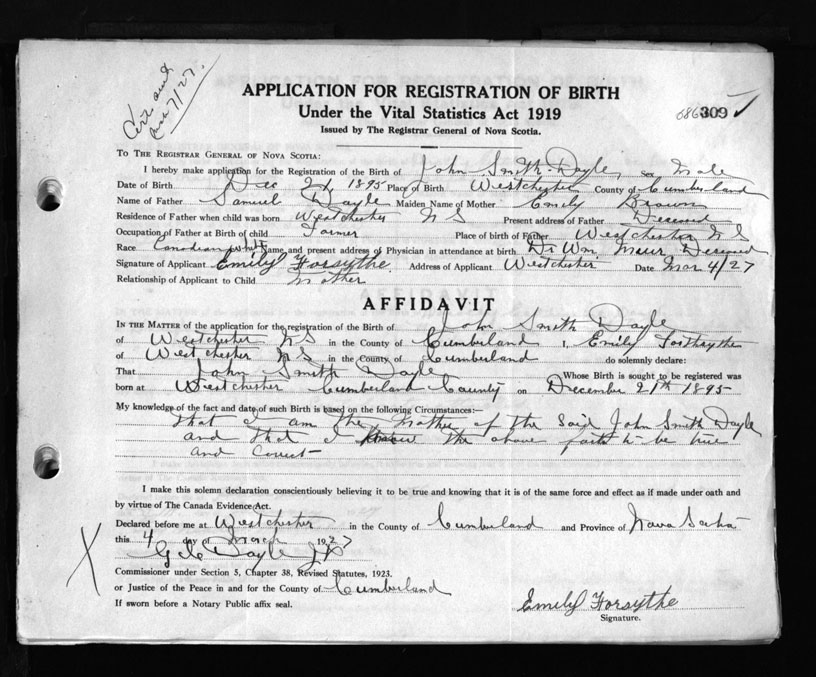 APPLICATION FOR REGISTRATION OF BIRTH
Under the Vital Statistics Act 1919
Issued by The Registrar General of Nova Scotia.
686 309
TO THE REGISTRAR GENERAL OF NOVA SCOTIA:
I hereby make application for the Registration of the Birth of John Smith Dayle, sex Male
Date of Birth Dec 21, 1895 Place of Birth Westchester County of Cumberland
Name of Father Samuel Dayle Maiden Name of Mother Emily Brown
Residence of Father when child was born Westchester N S Present address of Father Deceased
Occupation of Father at Birth of child Farmer Place of birth of Father Westchester N S
Race Canadian Name and present address of Physician in attendance at birth Dr Wm. Deceased
Signature of Applicant Emily Forsythe Address of Applicant Westchester Date Mar 4/27
Relationship of Applicant to Child Mother
AFFIDAVIT
IN THE MATTER of the application for the registration of the Birth of John Smith Dayle
of Westchester N S in the County of Cumberland I, Emily
of Westchester N S in the County of Cumberland do solemnly declare:
That John Smith Dayle Whose Birth is sought to be registered was
born at Westchester Cumberland County on December 21th 1895
My knowledge of the fact and date of such Birth is based on the following Circumstances:—
That I am the Mother of the Said John Smith Dayle
and that I the above to be true
and Correct
I make this solemn declaration conscientiously believing it to be true and knowing that it is of the same force and effect as if made under oath and
by virtue of The Canada Evidence Act.
Declared before me at Westchester in the County of Cumberland and Province of Nova Scotia
this 4 day of March 1927
Dayle JP
Commissioner under Section 5, Chapter 38, Revised Statutes, 1923.
or Justice of the Peace in and for the County of Cumberland
If sworn before a Notary Public affix seal.
Emily Forsythe
Signature.